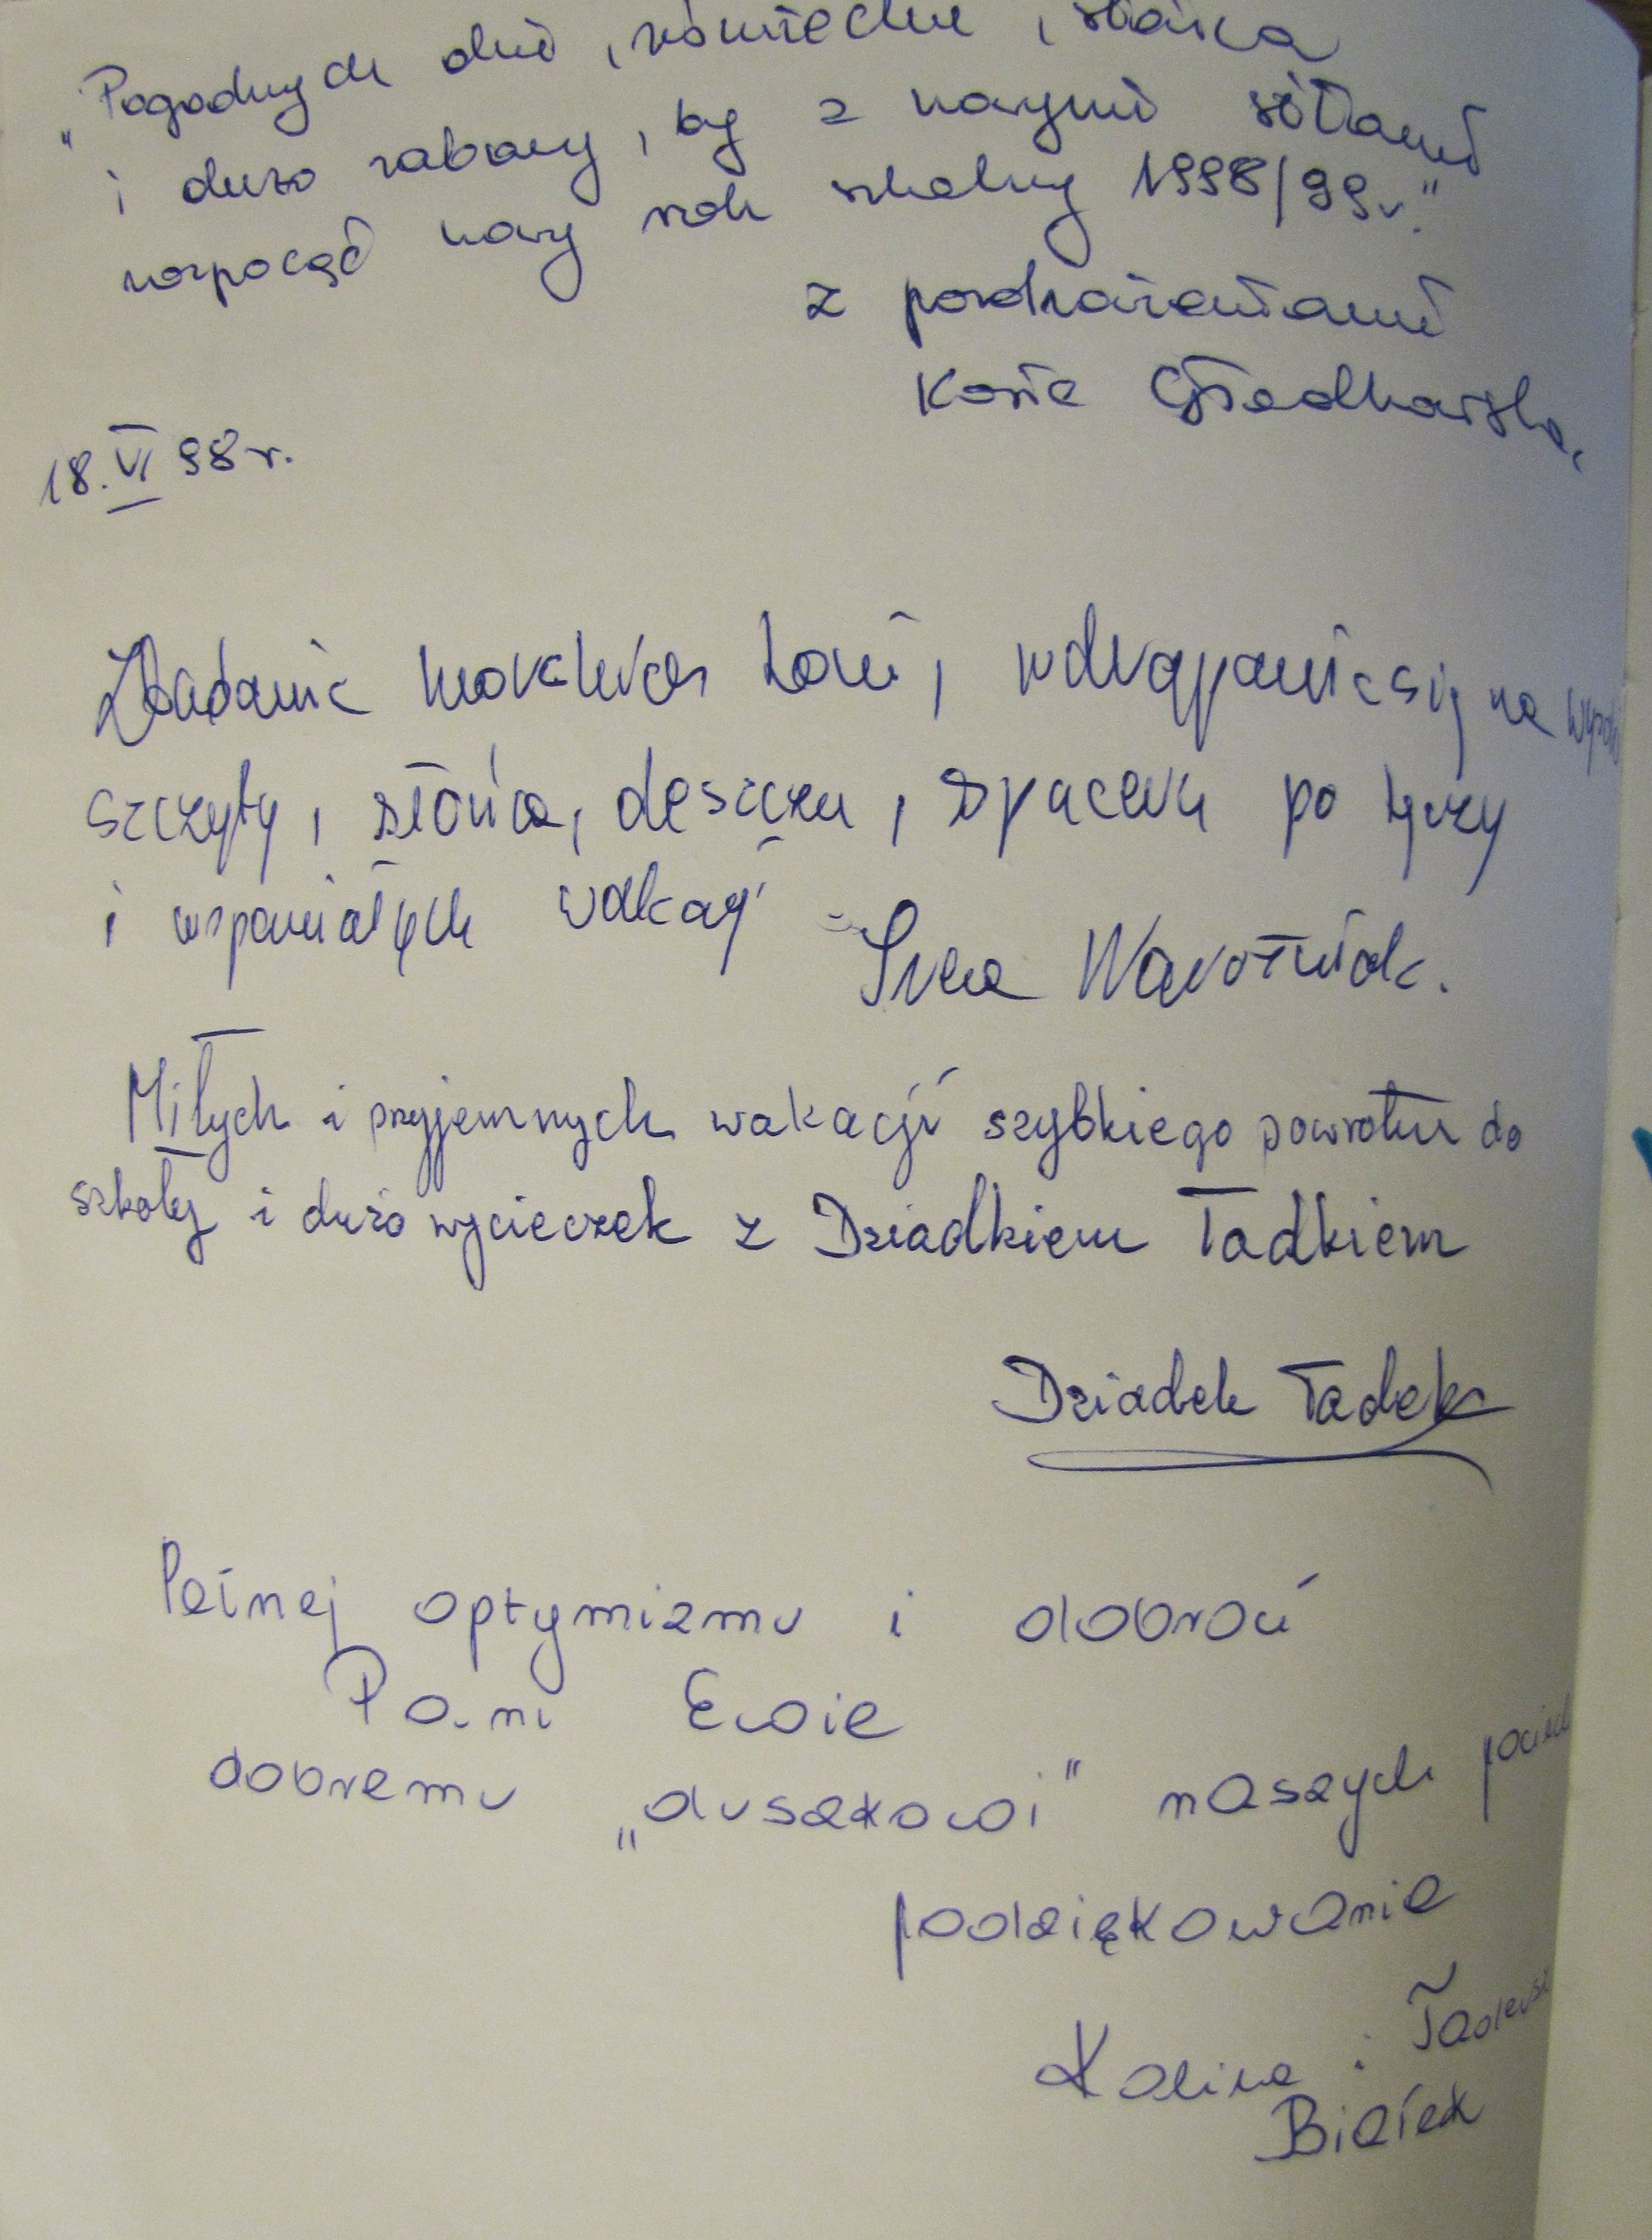 „Pogodnych dni, uśmiechu, słońca
i dużo zabawy, by z nowymi siłami
rozpocząć nowy rok szkolny 1998/99r."
z pozdrowieniami
Kasia
18.VI 98r.
Zbadania morskiego, wdrapania się na
szczyty, słońca, deszczu, spaceru po tęczy
i wspaniałych wakacji
Miłych i przyjemnych wakacji szybkiego powrotu do
szkoły i dużo wycieczek z Dziadkiem Tadkiem
Dziadek Tadek
Pełnej optymizmu i dobroci
Pani Ewie
dobremu „duszkowi" naszych pociech
podziękowanie
Kalina i Tadeusz
Białek